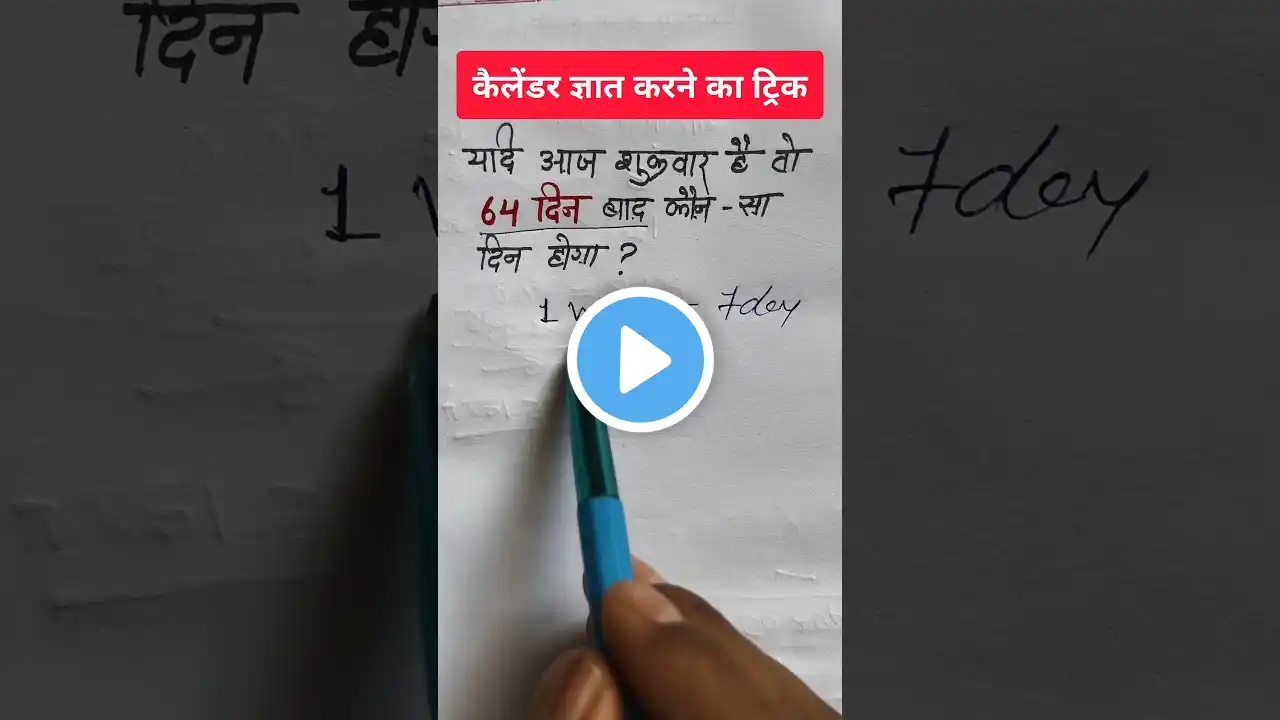 कैलेंडर ज्ञात करने का ट्रिक
यदि आज शुक्रवार है तो
64 दिन बाद कौन-सा
दिन होगा ?
1 = 7dey